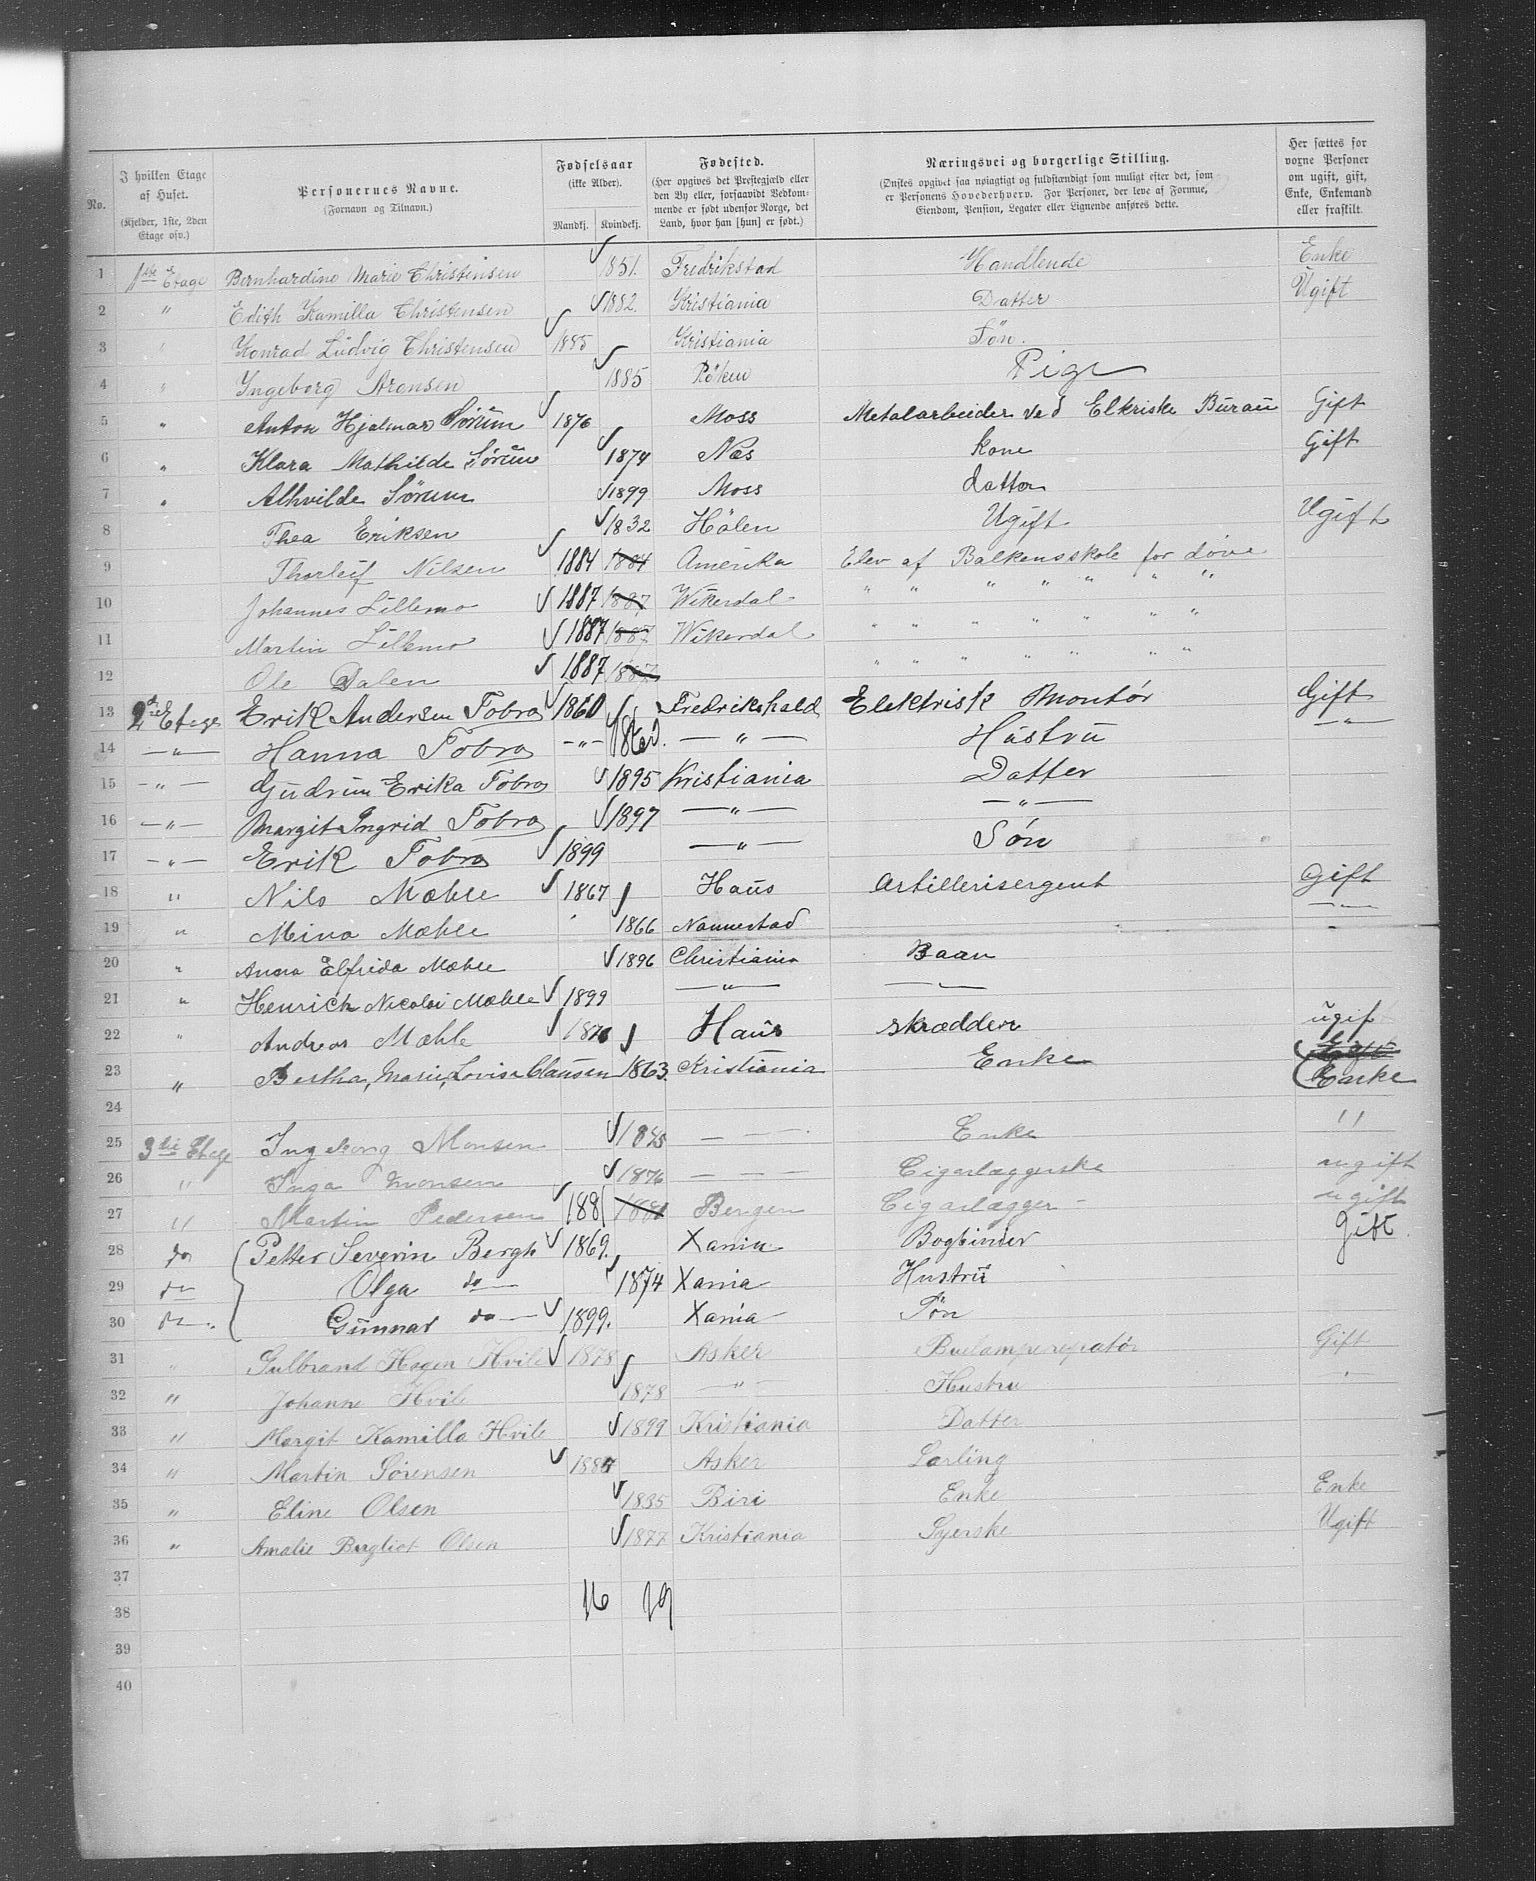 No. | I hvilken Etage af Huset. (Kjelder, 1ste, 2den Etage osv.) | Personernes Navne. (Fornavn og Tilnavn.) | Fødselsaar (ikke Alder). Mandkj. | Kvindekj. | Fødested. (Her opgives det Prestegjæld eller den By eller, forsaavidt Vedkommende er født udenfor Norge, det Land, hvor han [hun] er født.) | Næringsvei og borgerlige Stilling. (Ønskes opgivet saa nøiagtigt og fuldstændigt som muligt efter det, som er Personens Hovederhverv. For Personer, der leve af Formue, Eiendom, Pension, Legater eller Lignende anføres dette. | Her sættes for voxne Personer om ugift, gift, Enke, Enkemand eller fraskilt.
1 | 1ste Etage | Bernhardine Marie Christensen | | 1851. | Fredrikstad | Handlende | Enke
2 | " | Edith Kamilla Christensen | | 1882. | Kristiania | Datter | Ugift
3 | " | Konrad Ludvig Christensen | 1885 | | Kristiania | Søn.
4 | " | Ingeborg Aronsen | | 1885 | Röken | Pige
5 | " | Anton Hjalmar Sörum | 1876 | | Moss | Metalarbeider ved Elkriske Bürau | Gift
6 | " | Klara Mathilde Sørum | | 1874 | Næs | kone | Gift
7 | " | Alhvilde Sörum | | 1899 | Moss | datter
8 | | Thea Eriksen | | 1832 | Hölen | Ugift | Ugift
9 | | Thorleif Nilsen | 1884 | 1884 | Amerika | Elev af Balkensskole for døve
10 | | Johannes Lillemo | 1887 | 1887 | Wikerdal | " " " " " " "
11 | | Martin Lillemo | 1887 | 1887 | Wikerdal | " " " " " " "
12 | | Ole Dalen | 1887 | 1887 | | " " " " " " "
13 | 2den Etage | Erik Andersen Tobro | 1860 | | Fredrikshald | Elektrisk Montør | Gift
14 | —"— | Hanna Tobro | —"— | 1860. | —"— | Hüstrü | —"—
15 | —"— | Gudrun Erika Tobro | | 1895 | Kristiania | Datter
16 | —"— | Margit Ingrid Tobro | | 1897 | —"— | —"—
17 | —"— | Erik Tobro | 1899 | | —"— | Søn
18 | " | Nils Mæhle | 1867 | | Haüs | Artillerisergent | Gift
19 | " | Mina Mæhle | | 1866 | Nannestad | | —"—
20 | " | Anna Elfrida Mæhle | | 1896 | Christiania | Baan
21 | " | Henrich Nicolai Mæhle | 1899 | | —"— | —"—
22 | " | Andreas Mæhle | 1876 | | Haüs | skrædder | ugift
23 | " | Bertha, Marie, Lovise Clausen | | 1863. | Kristiania | Enke | Enke
24
25 | 3die Etage | Ingeborg Monsen | | 1845 | — — — | Enke | "
26 | " | Inga Monsen | | 1876 | — — — | Cigarlæggerske | ugift
27 | " | Martin Pedersen | 1881 | 1881 | Bergen | Cigarlægger | ugift
28 | do | Petter Severin Bergh | 1869. | | Xania | Bogbinder | gift.
29 | do | Olga do | | 1874 | Xania | Hustrü
30 | do. | Gunnar do | 1899. | | Xania | Søn
31 | " | Gulbrand Hagen Hvile | 1878 | | Asker | Buelampereparatør | Gift
32 | " | Johanne Hvile | | 1878 | —"— | Hustru | "
33 | " | Margit Kamilla Hvile | | 1899 | Kristiania | Datter
34 | " | Martin Sørensen | 1884 | | Asker | Lærling
35 | " | Eline Olsen | | 1835 | Biri | Enke | Enke
36 | " | Amalie Bergliot Olsen | | 1877 | Kristiania | Syerske | Ugift
37
38 | | | 16 | 19
39
40